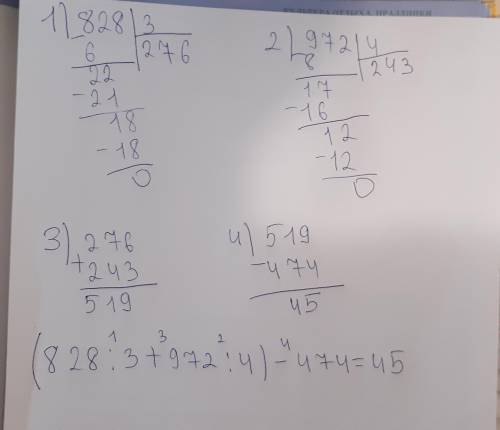 1) 828 | 3
6 | 276
22
- 21
18
- 18
0
2) 972 | 4
8 | 243
17
- 16
12
- 12
0
3) 276
+ 243
519
4) 519
- 474
45
1 3 2 4
(828 : 3 + 972 : 4) - 474 = 45